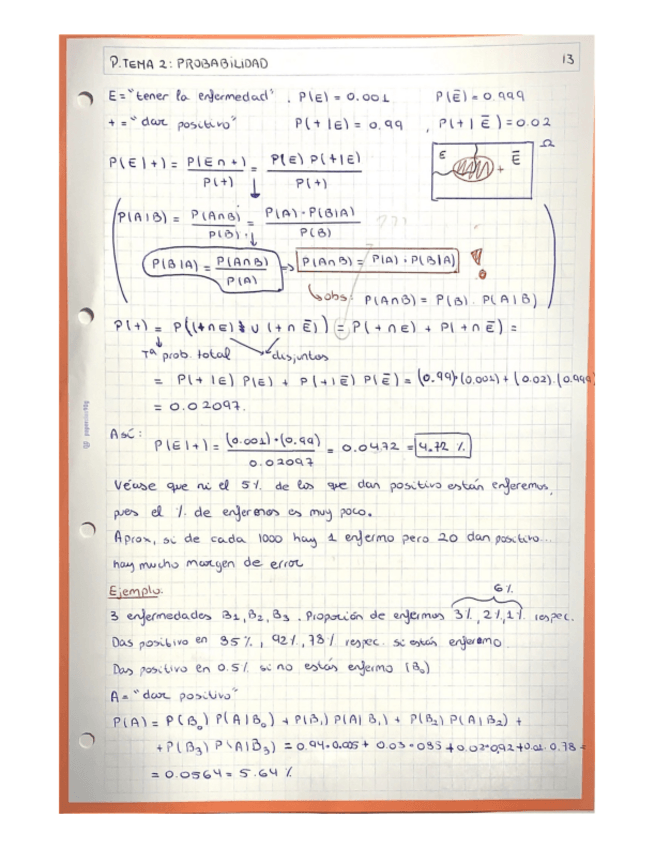 P.TEMA 2: PROBABILIDAD 13
E = "tener la enfermedad", P(E) = 0.001 P(Ē) = 0.999
+ = "dar positivo" P(+|E) = 0.99, P(+|Ē) = 0.02
E Ē + Ω
P(E|+) = P(E∩+)/P(+) = P(E) P(+|E)/P(+)
P(A|B) = P(A∩B)/P(B) = P(A)·P(B|A)/P(B) ???
P(B|A) = P(A∩B)/P(A) => P(A∩B) = P(A)·P(B|A) !
obs: P(A∩B) = P(B)·P(A|B)
P(+) = P((+∩E) ∪ (+∩Ē)) = P(+∩E) + P(+∩Ē) =
Tª prob. total disjuntos
= P(+|E) P(E) + P(+|Ē) P(Ē) = (0.99)·(0.001) + (0.02)·(0.999)
= 0.02097.
Así:
P(E|+) = (0.001)·(0.99)/0.02097 = 0.0472 = 4.72 %
Véase que ni el 5% de los que dan positivo están enfermos,
pues el % de enfermos es muy poco.
Aprox, si de cada 1000 hay 1 enfermo pero 20 dan positivo...
hay mucho margen de error
Ejemplo. 6%
3 enfermedades B1, B2, B3. Proporción de enfermos 3%, 2%, 1% respec.
Das positivo en 95%, 92%, 78% respec. si estás enfermo
Das positivo en 0.5% si no estás enfermo (B0)
A = "dar positivo"
P(A) = P(B0) P(A|B0) + P(B1) P(A|B1) + P(B2) P(A|B2) +
+ P(B3) P(A|B3) = 0.94·0.005 + 0.03· + 0.02·0,92 + 0.01·0.78 =
= 0.0564 = 5.64 %